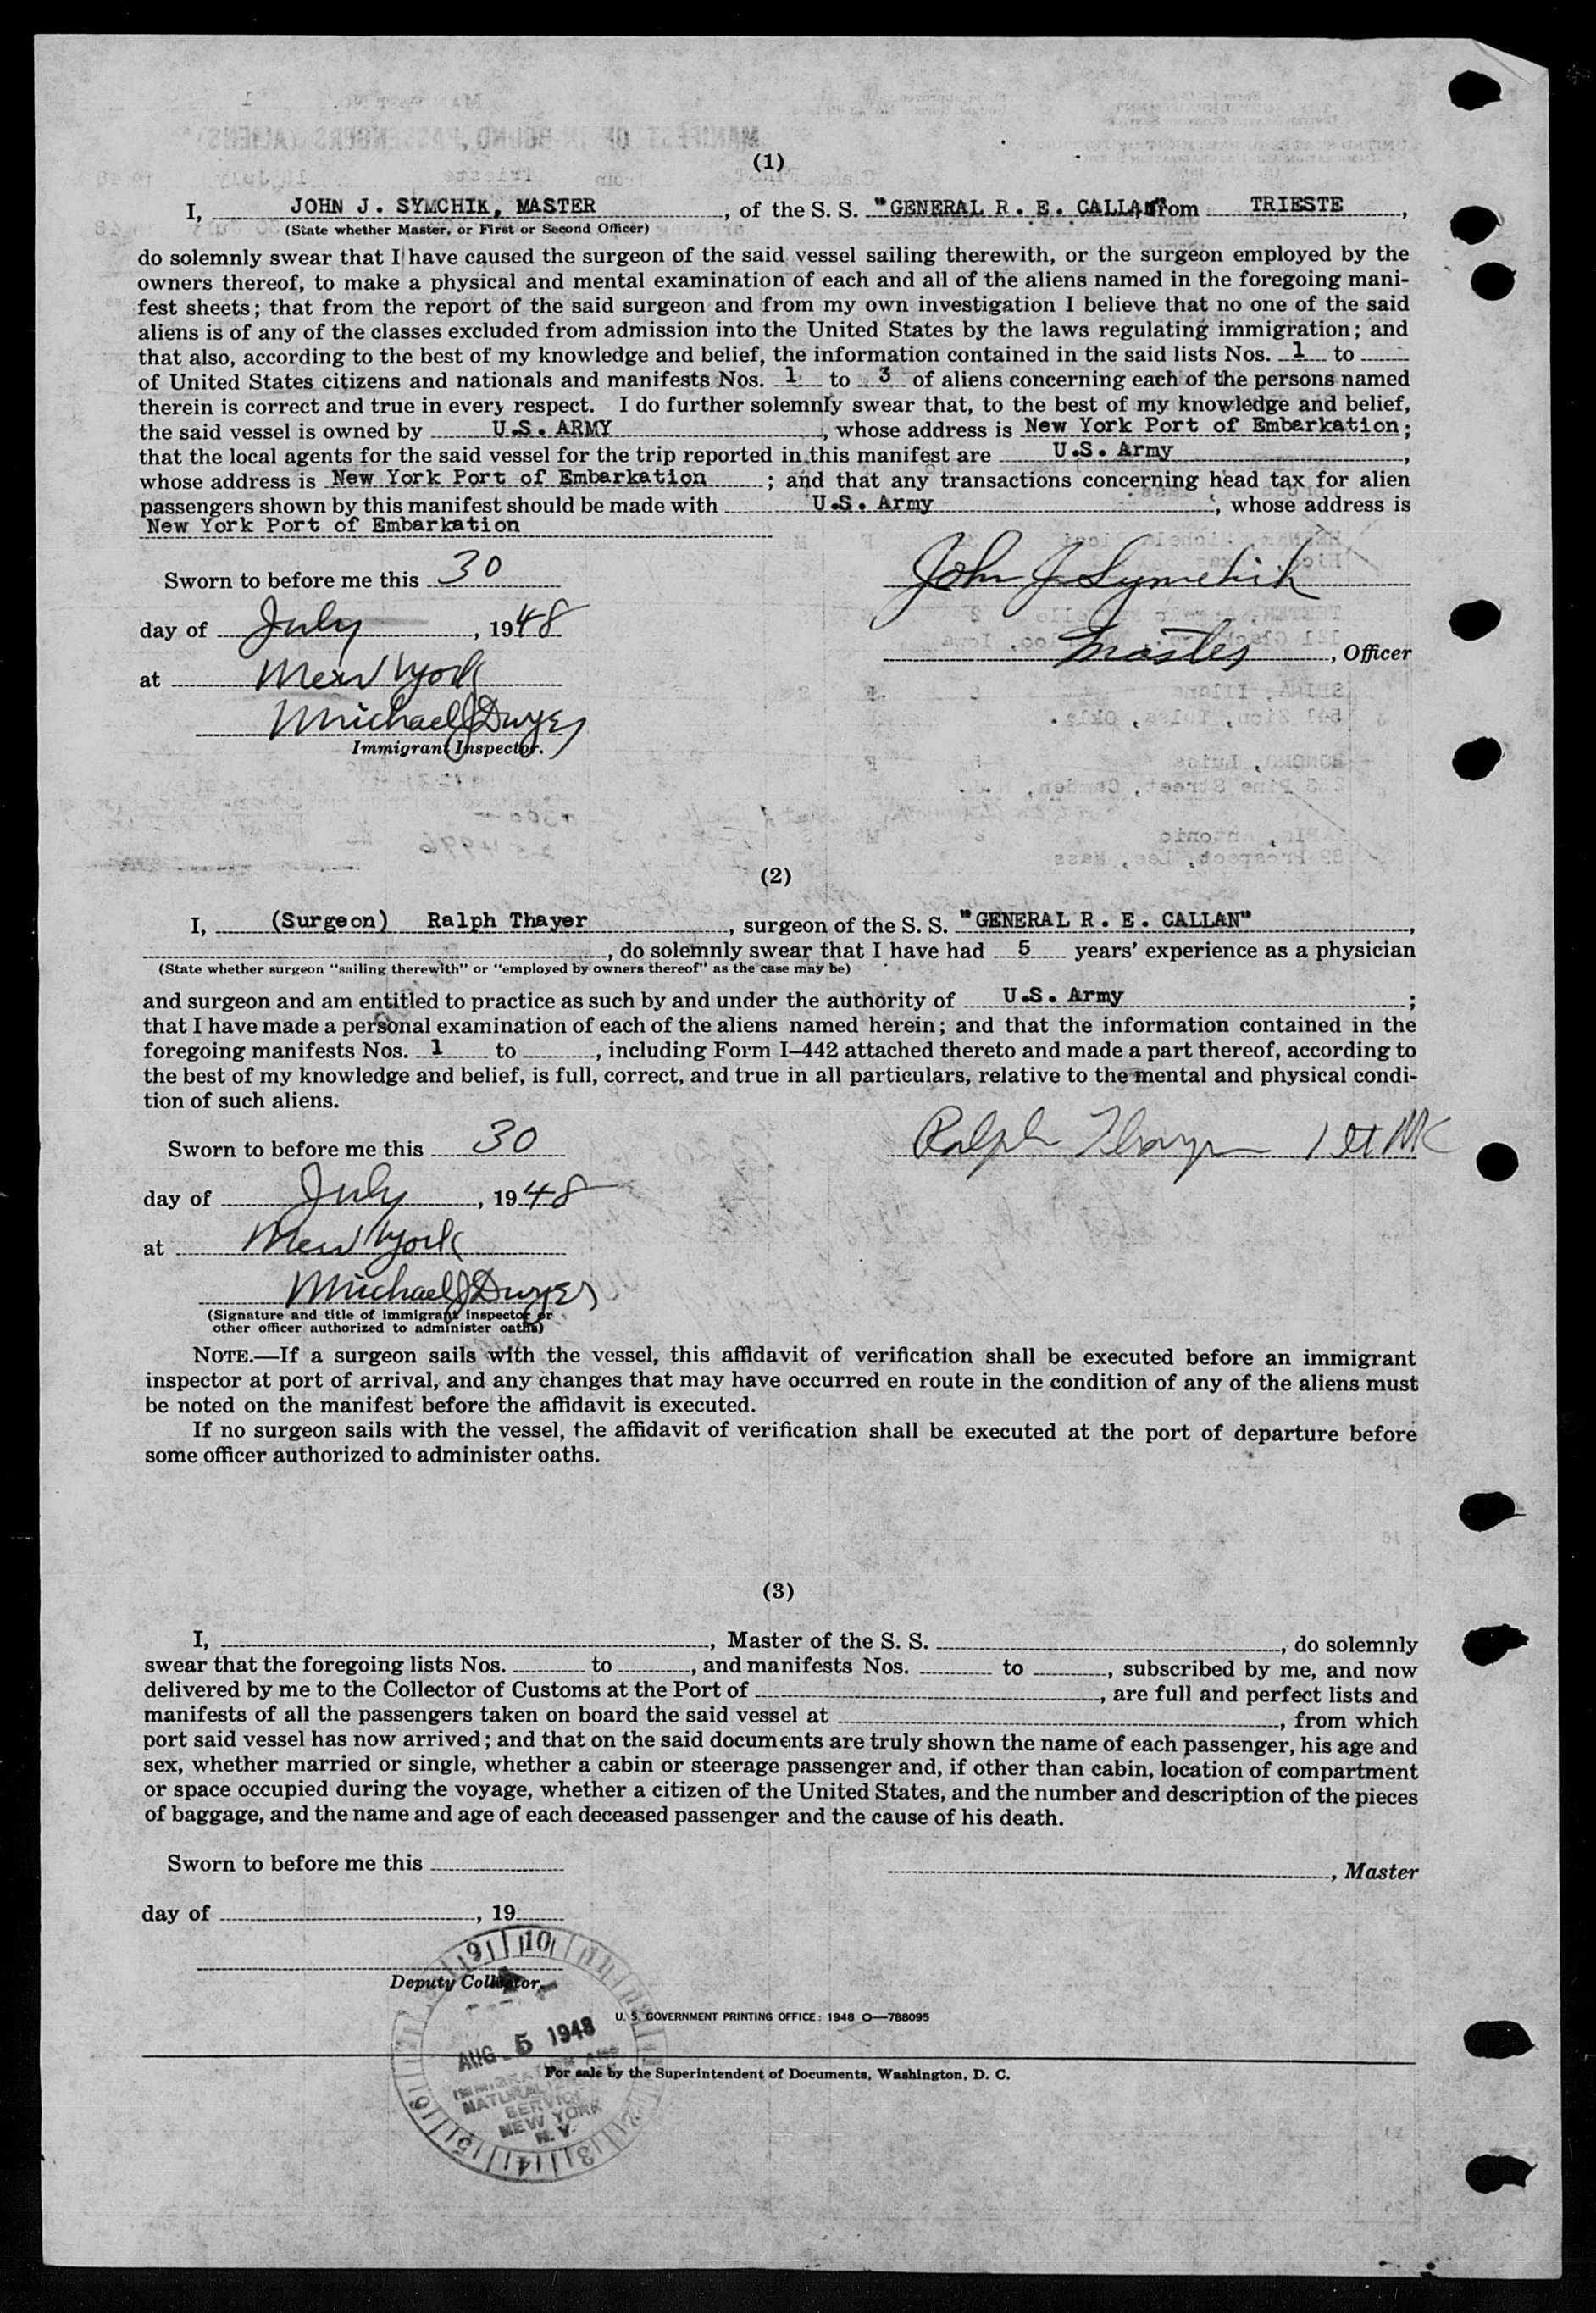 (1)
I, JOHN J. SYMCHIK, MASTER, of the S. S. "GENERAL R. E. CALLAN" from TRIESTE,
(State whether Master, or First or Second Officer)
do solemnly swear that I have caused the surgeon of the said vessel sailing therewith, or the surgeon employed by the
owners thereof, to make a physical and mental examination of each and all of the aliens named in the foregoing mani-
fest sheets; that from the report of the said surgeon and from my own investigation I believe that no one of the said
aliens is of any of the classes excluded from admission into the United States by the laws regulating immigration; and
that also, according to the best of my knowledge and belief, the information contained in the said lists Nos. 1 to
of United States citizens and nationals and manifests Nos. 1 to 3 of aliens concerning each of the persons named
therein is correct and true in every respect. I do further solemnly swear that, to the best of my knowledge and belief,
the said vessel is owned by U.S. ARMY, whose address is New York Port of Embarkation;
that the local agents for the said vessel for the trip reported in this manifest are U.S. Army,
whose address is New York Port of Embarkation; and that any transactions concerning head tax for alien
passengers shown by this manifest should be made with U.S. Army, whose address is
New York Port of Embarkation
Sworn to before me this 30
John J Symchik
day of July, 1948
Master, Officer
at New York
Michael J Dwyer
Immigrant Inspector.
(2)
I, (Surgeon) Ralph Thayer, surgeon of the S. S. "GENERAL R. E. CALLAN",
, do solemnly swear that I have had 5 years' experience as a physician
(State whether surgeon "sailing therewith" or "employed by owners thereof" as the case may be)
and surgeon and am entitled to practice as such by and under the authority of U.S. Army;
that I have made a personal examination of each of the aliens named herein; and that the information contained in the
foregoing manifests Nos. 1 to , including Form I–442 attached thereto and made a part thereof, according to
the best of my knowledge and belief, is full, correct, and true in all particulars, relative to the mental and physical condi-
tion of such aliens.
Sworn to before me this 30
Ralph Thayer 1 Lt MC
day of July, 1948
at New York
Michael J Dwyer
(Signature and title of immigrant inspector or
other officer authorized to administer oaths)
NOTE.—If a surgeon sails with the vessel, this affidavit of verification shall be executed before an immigrant
inspector at port of arrival, and any changes that may have occurred en route in the condition of any of the aliens must
be noted on the manifest before the affidavit is executed.
If no surgeon sails with the vessel, the affidavit of verification shall be executed at the port of departure before
some officer authorized to administer oaths.
(3)
I, , Master of the S. S. , do solemnly
swear that the foregoing lists Nos. to , and manifests Nos. to , subscribed by me, and now
delivered by me to the Collector of Customs at the Port of , are full and perfect lists and
manifests of all the passengers taken on board the said vessel at , from which
port said vessel has now arrived; and that on the said documents are truly shown the name of each passenger, his age and
sex, whether married or single, whether a cabin or steerage passenger and, if other than cabin, location of compartment
or space occupied during the voyage, whether a citizen of the United States, and the number and description of the pieces
of baggage, and the name and age of each deceased passenger and the cause of his death.
Sworn to before me this
, Master
day of , 19
Deputy Collector.
U. S. GOVERNMENT PRINTING OFFICE: 1948 O—788095
AUG 5 1948
For sale by the Superintendent of Documents, Washington, D. C.
IMMIGRATION AND
NATURALIZATION
SERVICE
NEW YORK
N.Y.